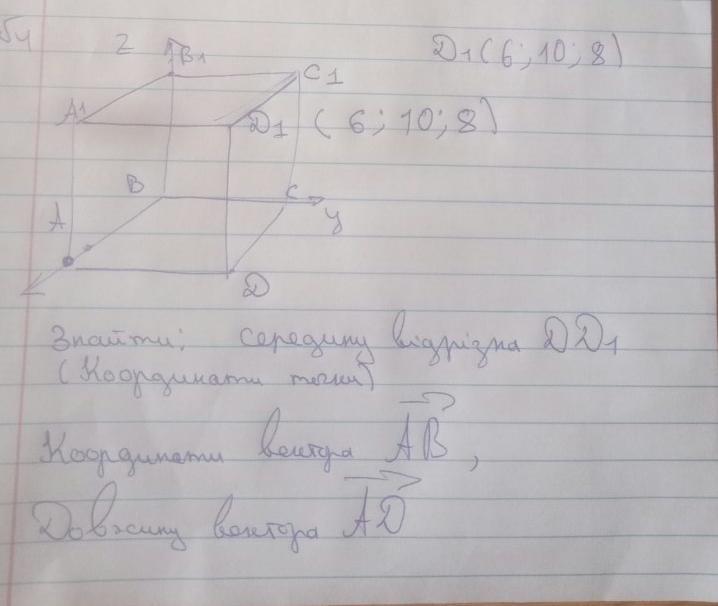 Z
B1
D1(6; 10; 8)
C1
A1
D1 (6; 10; 8)
B
C
A
y
D
Знайти: середину відрізка DD1
(Координати точки)
Координати вектора AB,
Довжину вектора AD